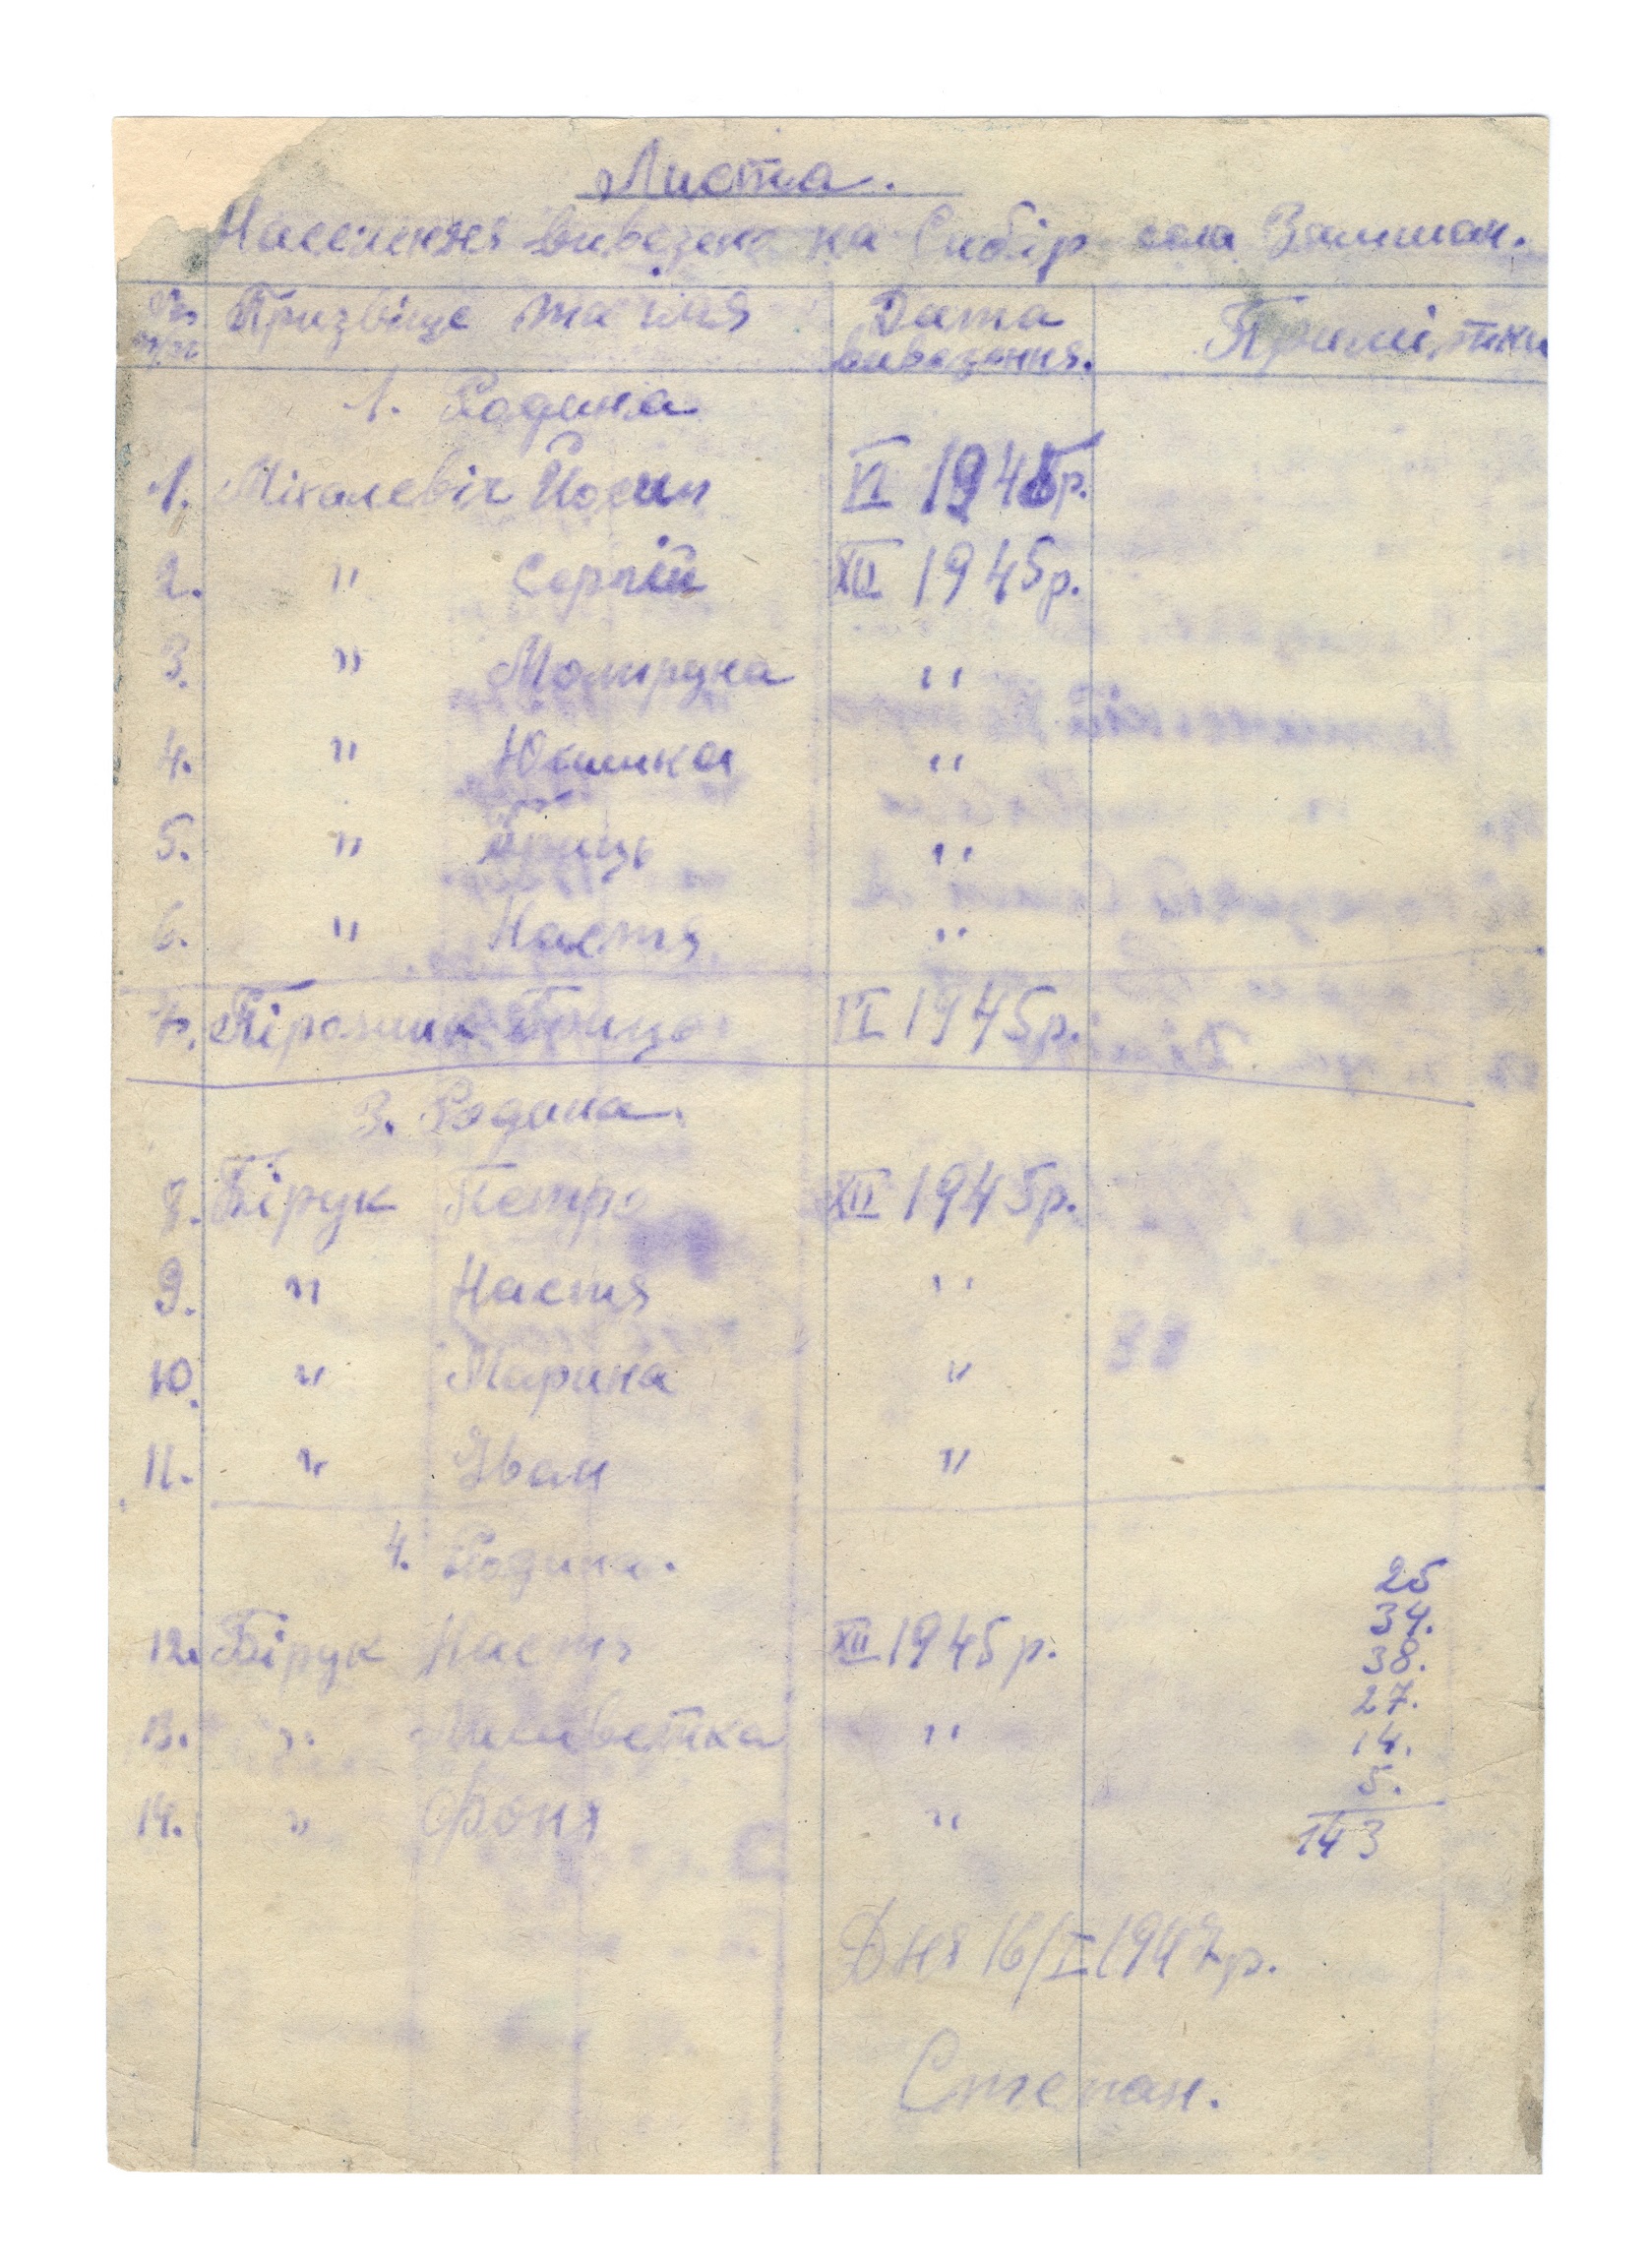 Листа.
Населення вивезене на Сибір села Замшан.
№ п/п Призвіще та імя Дата вивезення. Примітки
1. Родина
1. Міхалевіч Йосип VI 1945р.
2. " Сергій XII 1945р.
3. " Мотруна "
4. " Юхимка "
5. " Гриць "
6. " Настя "
7. Гриць VI 1945р.
3. Родина.
8. Бірук Петро XII 1945р.
9. " Настя "
10. " Марина "
11. " Іван "
4. Родина.
12. Бірук Настя XII 1945р.
13. " "
14. " Фоня "
25
34.
38.
27.
14.
5.
143
Дня 16/I 1947р.
Степан.